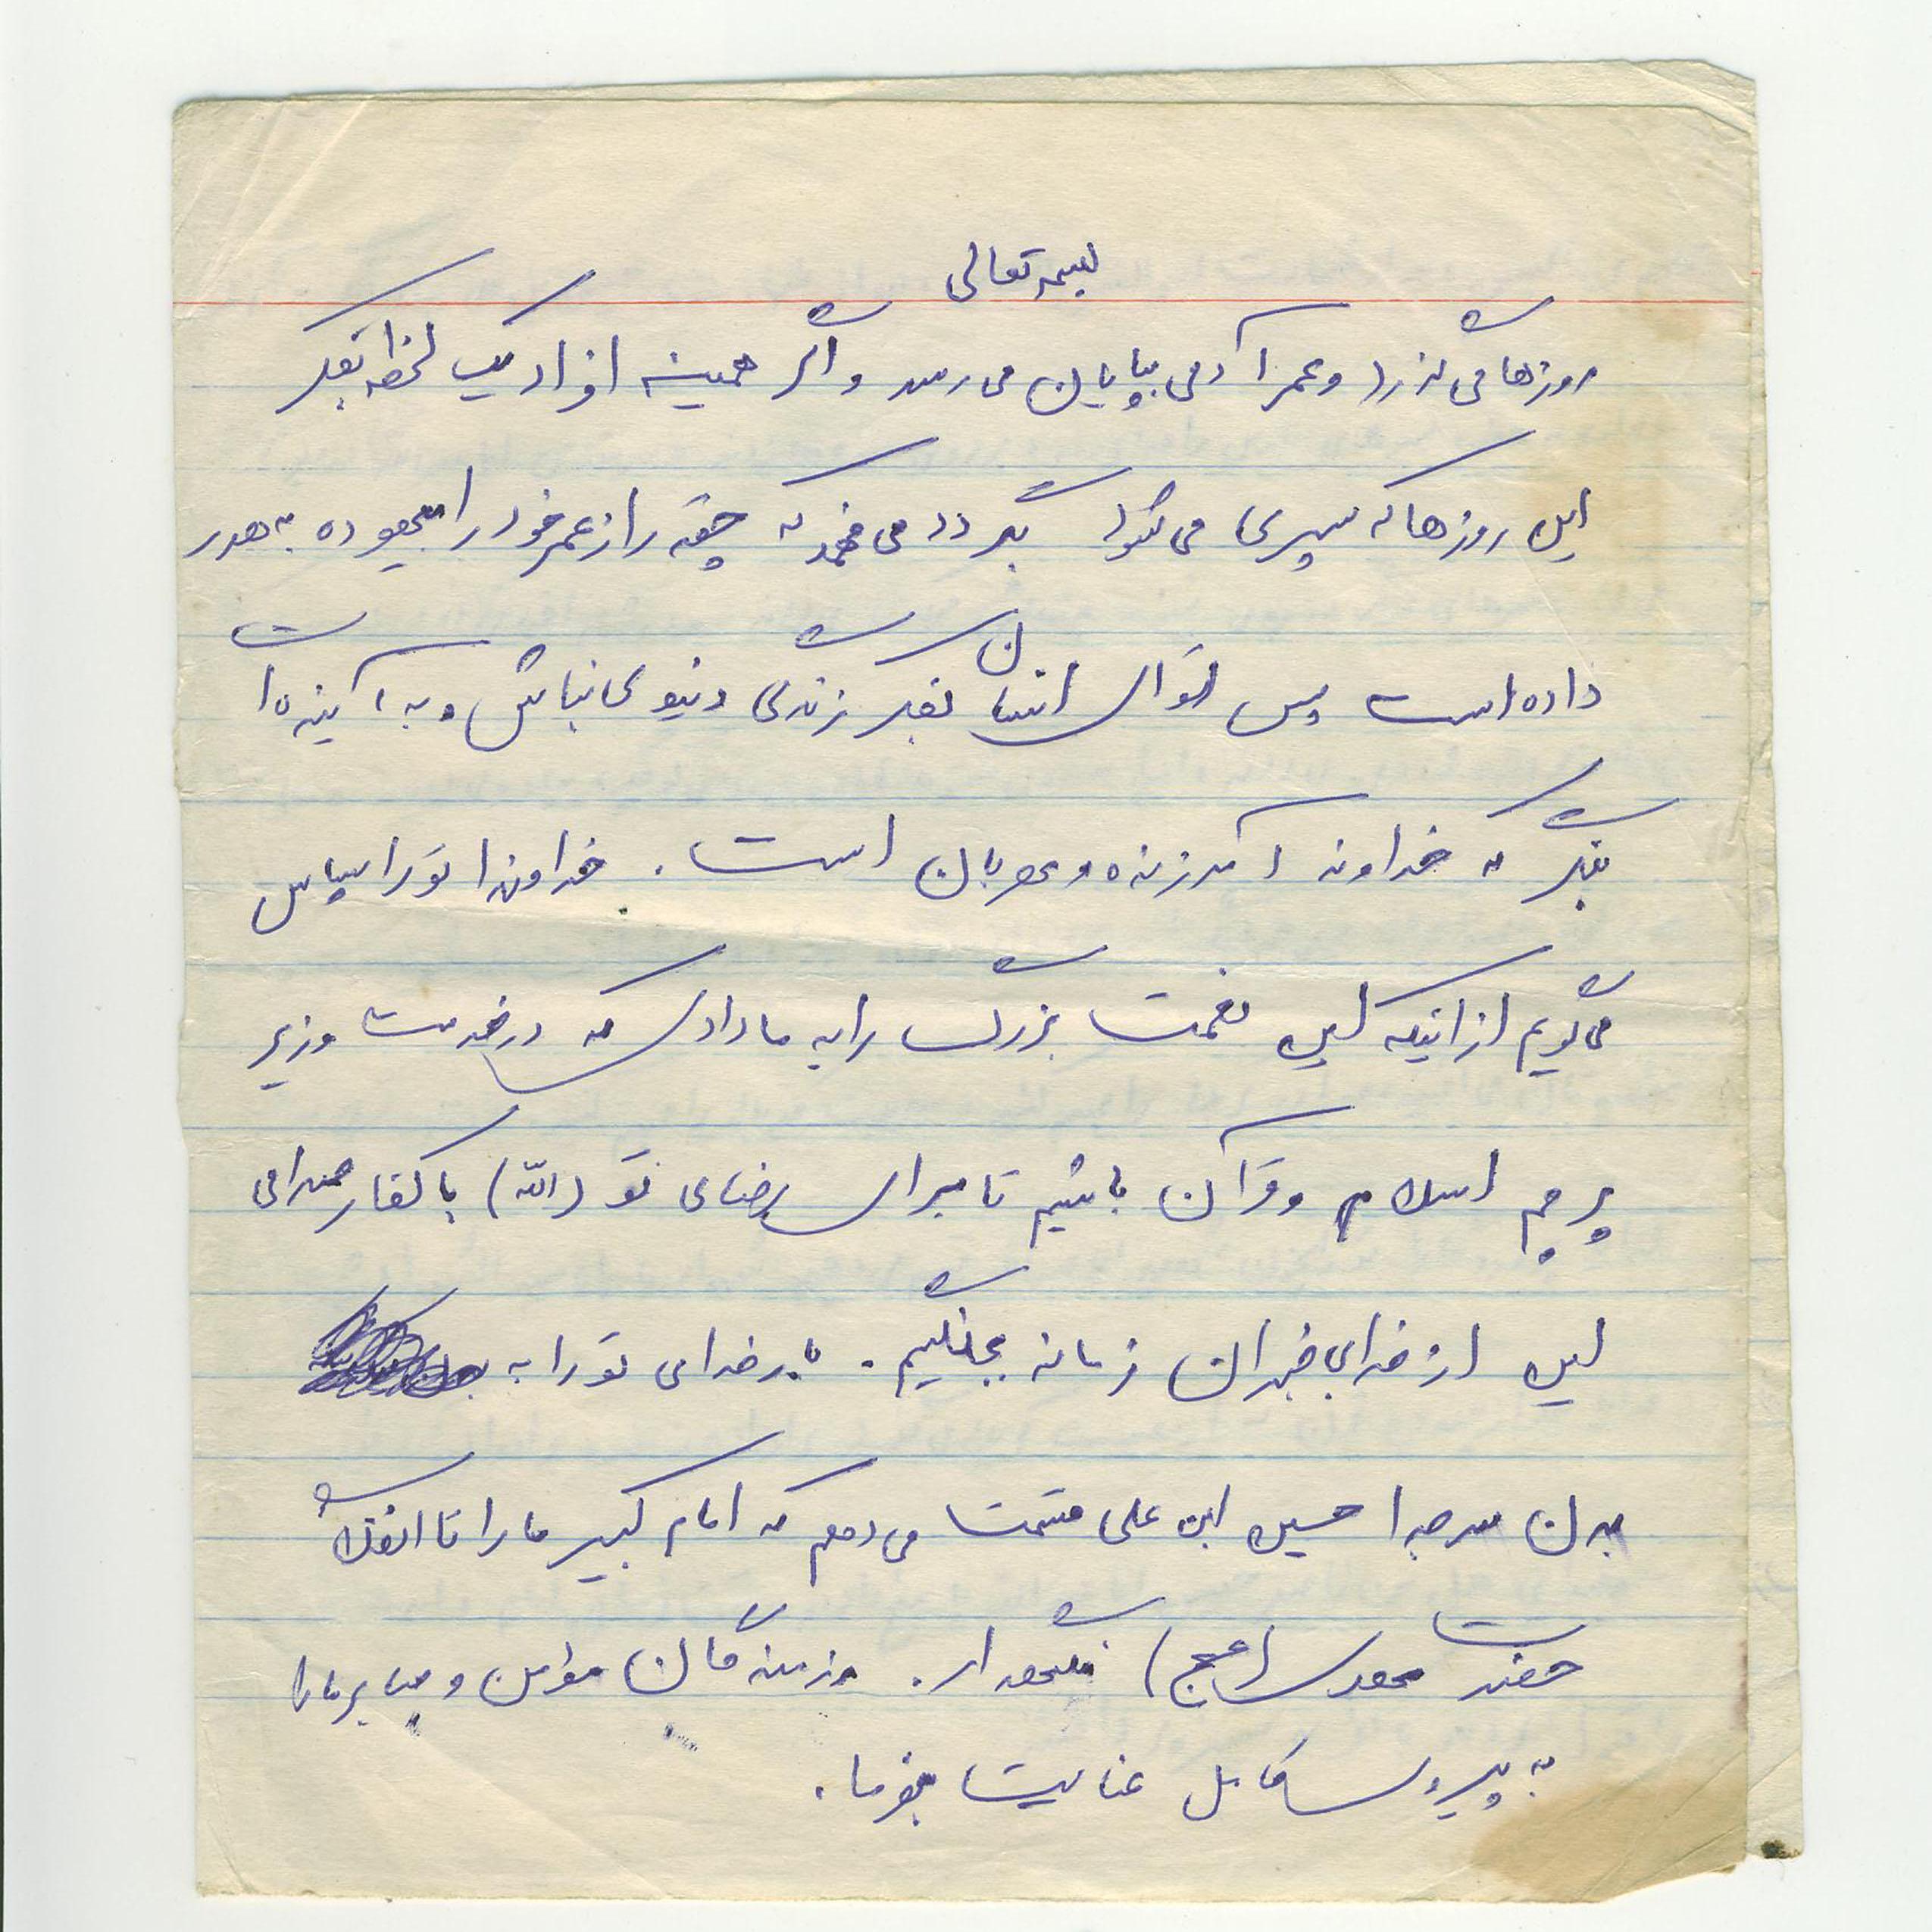 بسمه تعالی
روزها می گذرد و عمر آدمی بپایان می رسد و اگر همینه افراد یک لحظه بفکر
این روزها که سپری می شود بگردد می فهمد که چقدر از عمر خود را بیهوده به هدر
داده است پس تو ای انسان بفکر زندگی دنیوی نباش و به آینده ات
بنگر که خداوند آمرزنده و مهربان است. خداوندا تو را سپاس
می گویم از اینکه این نعمت بزرگ را به ما دادی که در خدمت وزیر
پرچم اسلام و قرآن باشیم تا برای رضای تو (الله) با کفار صدامی
این از خدا بی خبران زمانه بجنگیم. بار خدای تو را به
بدن سر جدا حسین ابن علی قسمت می دهم که امام کبیر ما را تا انقلاب
حضرت مهدی (عج) نگهدار. رزمندگان مؤمن و صابر ما را
به پیروزی کامل عنایت بفرما.